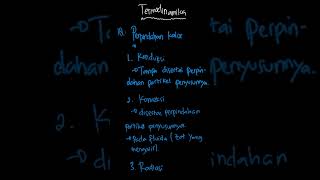 Termodinamika
B. Perpindahan kalor
1. Konduksi
→ Tanpa disertai perpin-
dahan partikel penyusunnya.
2. Konveksi
→ disertai perpindahan
partikel penyusunnya.
→ Pada fluida (zat yang
mengalir).
3. Radiasi
indahan